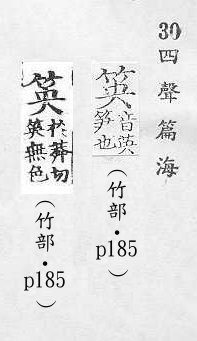 30 四聲篇海
䇦 音英 笋也 （竹部・p185）
䇦 扵莽切 䇦無色 （竹部・p185）